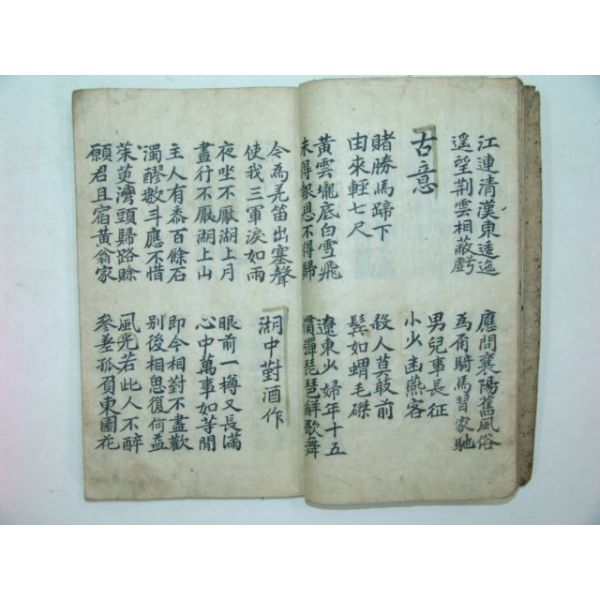 江連清漢東逶迤
遙望荊雲相蔽虧
應問襄陽舊風俗
為爾騎馬習家馳
古意
男兒事長征
小少幽燕客
賭勝馬蹄下
由來輕七尺
殺人莫敢前
鬚如蝟毛磔
黃雲壠底白雪飛
未得報恩不得歸
遼東少婦年十五
慣彈琵琶解歌舞
今為羌笛出塞聲
使我三軍淚如雨
湖中對酒作
夜坐不厭湖上月
晝行不厭湖上山
眼前一樽又長滿
心中萬事如等閒
主人有黍百餘石
濁醪數斗應不惜
即今相對不盡歡
別後相思復何益
茱萸灣頭歸路賒
願君且宿黃翁家
風光若此人不醉
參差孤負東園花